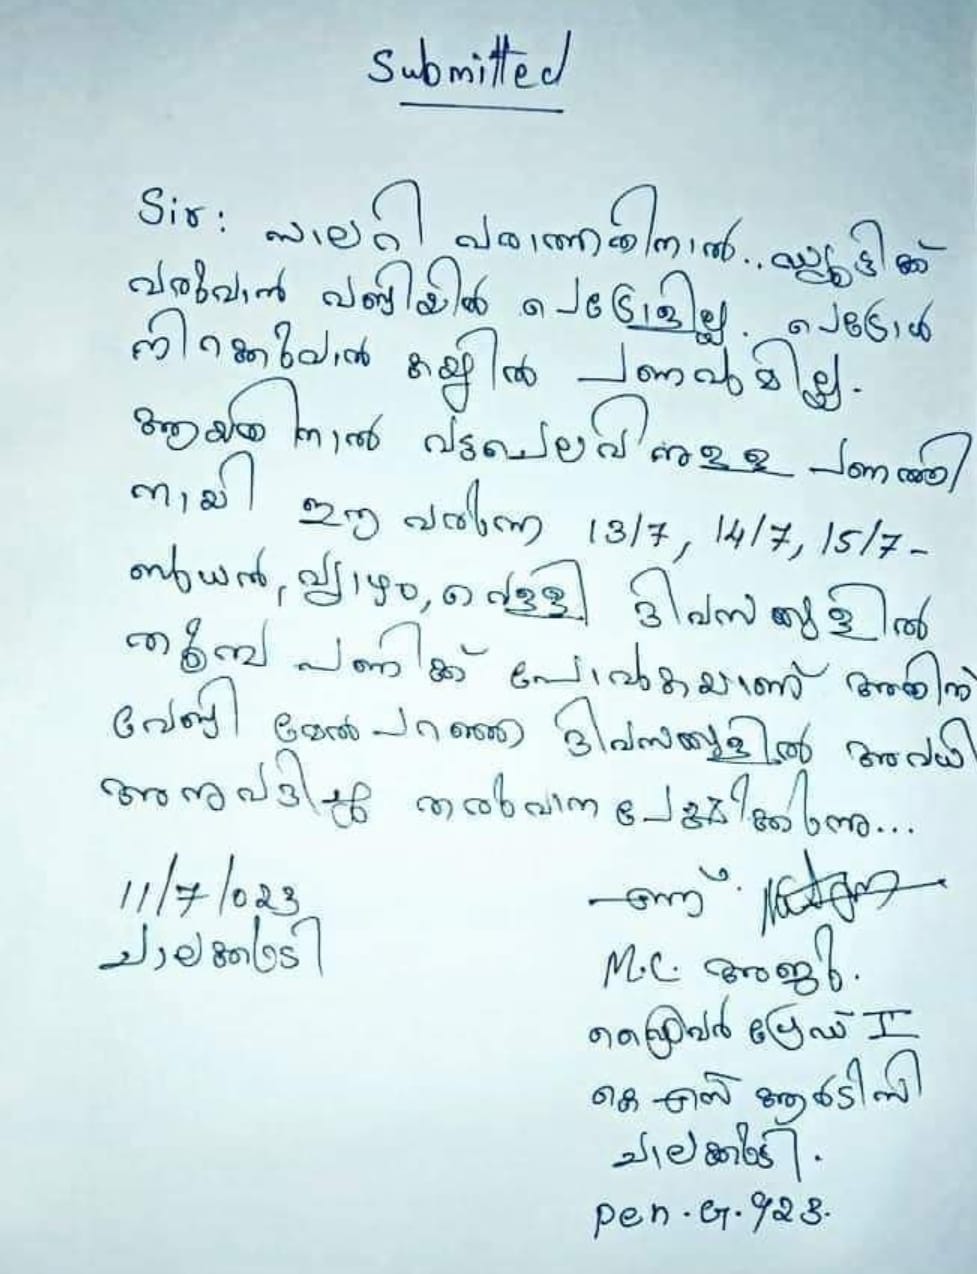 Submitted
Sir: സാലറി വരാത്തതിനാൽ.. ഡ്യൂട്ടിക്ക്
വരുവാൻ വണ്ടിയിൽ പെട്രോളില്ല. പെട്രോൾ
നിറക്കുവാൻ കയ്യിൽ പണവുമില്ല.
ആയതിനാൽ വട്ടചെലവിനുള്ള പണത്തി
നായി ഈ വരുന്ന 13/7, 14/7, 15/7 -
ബുധൻ, വ്യാഴം, വെള്ളി ദിവസങ്ങളിൽ
തൂമ്പ പണിക്ക് പോവുകയാണ് അതിന്
വേണ്ടി മേൽപറഞ്ഞ ദിവസങ്ങളിൽ അവധി
അനുവദിച്ചു തരുവാനപേക്ഷിക്കുന്നു...
11/7/023
ചാലക്കുടി
എന്ന്.
M.C. അജു.
ഡ്രൈവർ ഗ്രേഡ് II
കെ എസ് ആർടിസി
ചാലക്കുടി.
pen.G.923.